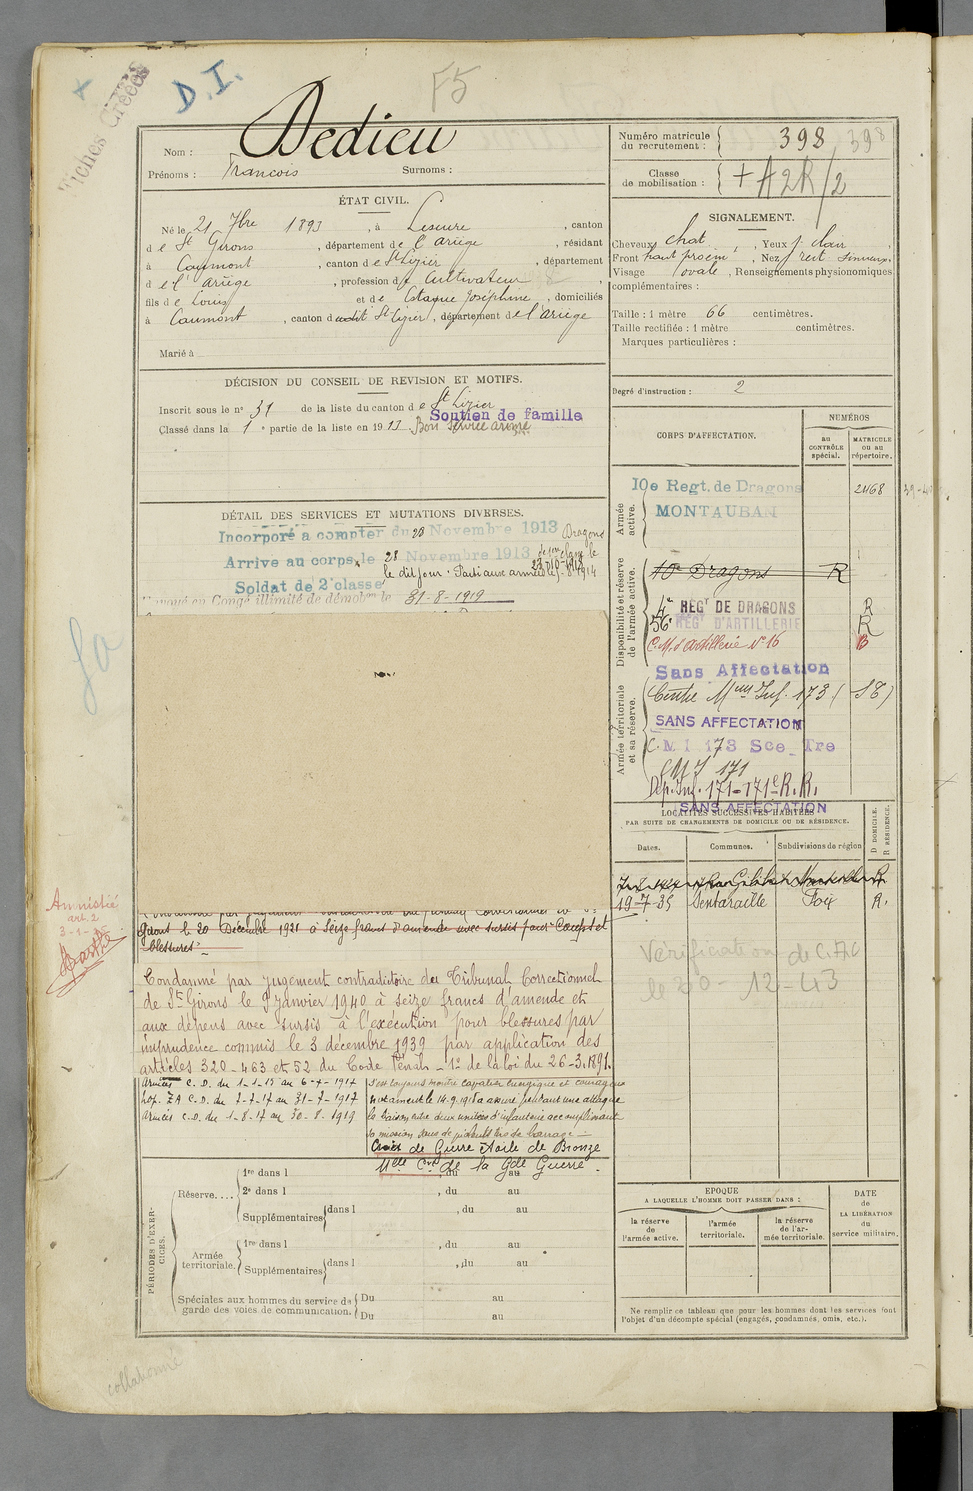 Fiches Créées
D.I.
F5
Nom : Dedieu
Prénoms : Francois Surnoms :
Numéro matricule du recrutement : 398 398
Classe de mobilisation : + A2R/2
ÉTAT CIVIL.
Né le 21 7bre 1893, à Lescure, canton
de St Girons, département de l'ariège, résidant
à Caumont, canton de St Lizier, département
de l'ariège, profession de Cultivateur
fils de Louis et de Josephine, domiciliés
à Caumont, canton dudit St Lizier, département de l'ariège
Marié à
SIGNALEMENT.
Cheveux chat, Yeux clair
Front haut proem, Nez rect sinueux.
Visage ovale, Renseignements physionomiques
complémentaires :
Taille : 1 mètre 66 centimètres.
Taille rectifiée : 1 mètre centimètres.
Marques particulières :
Degré d'instruction : 2
DÉCISION DU CONSEIL DE REVISION ET MOTIFS.
Inscrit sous le n° 31 de la liste du canton de St Lizier
Classé dans la 1e partie de la liste en 1913 Bon service armé
Soutien de famille
DÉTAIL DES SERVICES ET MUTATIONS DIVERSES.
Incorporé a compter du 28 Novembre 1913 Dragons
Arrive au corps le 28 Novembre 1913 de 1ere classe le
le dit jour. Parti aux armées le 1914
Soldat de 2e classe
en Congé illimité de démobon le 31-8-1919
CORPS D'AFFECTATION.
NUMÉROS
au CONTRÔLE spécial.
MATRICULE ou au répertoire.
Armée active.
10e Regt. de Dragons
MONTAUBAN
2468
Disponibilité et réserve de l'armée active.
10e Dragons R
4e REGT DE DRAGONS R
56e REGT D'ARTILLERIE R
C.M. d'Artillerie N° 16 B
Sans Affectation
Armée territoriale et sa réserve.
Centre Mon Inf. 173 (S8)
SANS AFFECTATION
C.M I 173 Sce Tre
CMI 171
Dép. Inf. 171 = 171e R.R.
SANS AFFECTATION
LOCALITÉS SUCCESSIVES HABITÉES
PAR SUITE DE CHANGEMENTS DE DOMICILE OU DE RÉSIDENCE.
Dates. Communes. Subdivisions de région
D DOMICILE. R RÉSIDENCE.
19-7-35 Sentaraille Foix R.
Vérification de C.
le 20-12-43
Amnistié
art. 2
Barthe
Girons le 20 Décembre 1921 à Seize francs d'amende avec sursis pour "Coups et
blessures"
Condamné par jugement contradictoire du Tribunal Correctionnel
de St Girons le 9 Janvier 1940 à seize francs d'amende et
aux dépens avec sursis à l'exécution pour blessures par
imprudence commis le 3 décembre 1939 par application des
articles 320 - 463 et 52 du Code Pénal - 1er de la loi du 26-3-1891.
Armées C.D. du 1-1-15 au 6-7-1917
Hop. ZA C.D. du 7-7-17 au 31-7-1917
Armées C.D. du 1-8-17 au 30-8-1919
S'est toujours montré cavalier énergique et courageux
notamment le 14.9.1918 a assuré pendant une attaque
la liaison entre deux unités d'infanterie accomplissant
sa mission sous de violents tirs de barrage.
Croix de Guerre Etoile de Bronze
Mlle Cve de la Gde Guerre.
PÉRIODES D'EXERCICES.
Réserve.... 1re dans l , du au
2e dans l , du au
Supplémentaires dans l , du au
Armée territoriale. 1re dans l , du au
Supplémentaires dans l , du au
Spéciales aux hommes du service de garde des voies de communication. Du au
Du au
EPOQUE
A LAQUELLE L'HOMME DOIT PASSER DANS :
la réserve de l'armée active.
l'armée territoriale.
la réserve de l'armée territoriale.
DATE de LA LIBÉRATION du service militaire.
Ne remplir ce tableau que pour les hommes dont les services font
l'objet d'un décompte spécial (engagés, condamnés, omis, etc.).
collationné